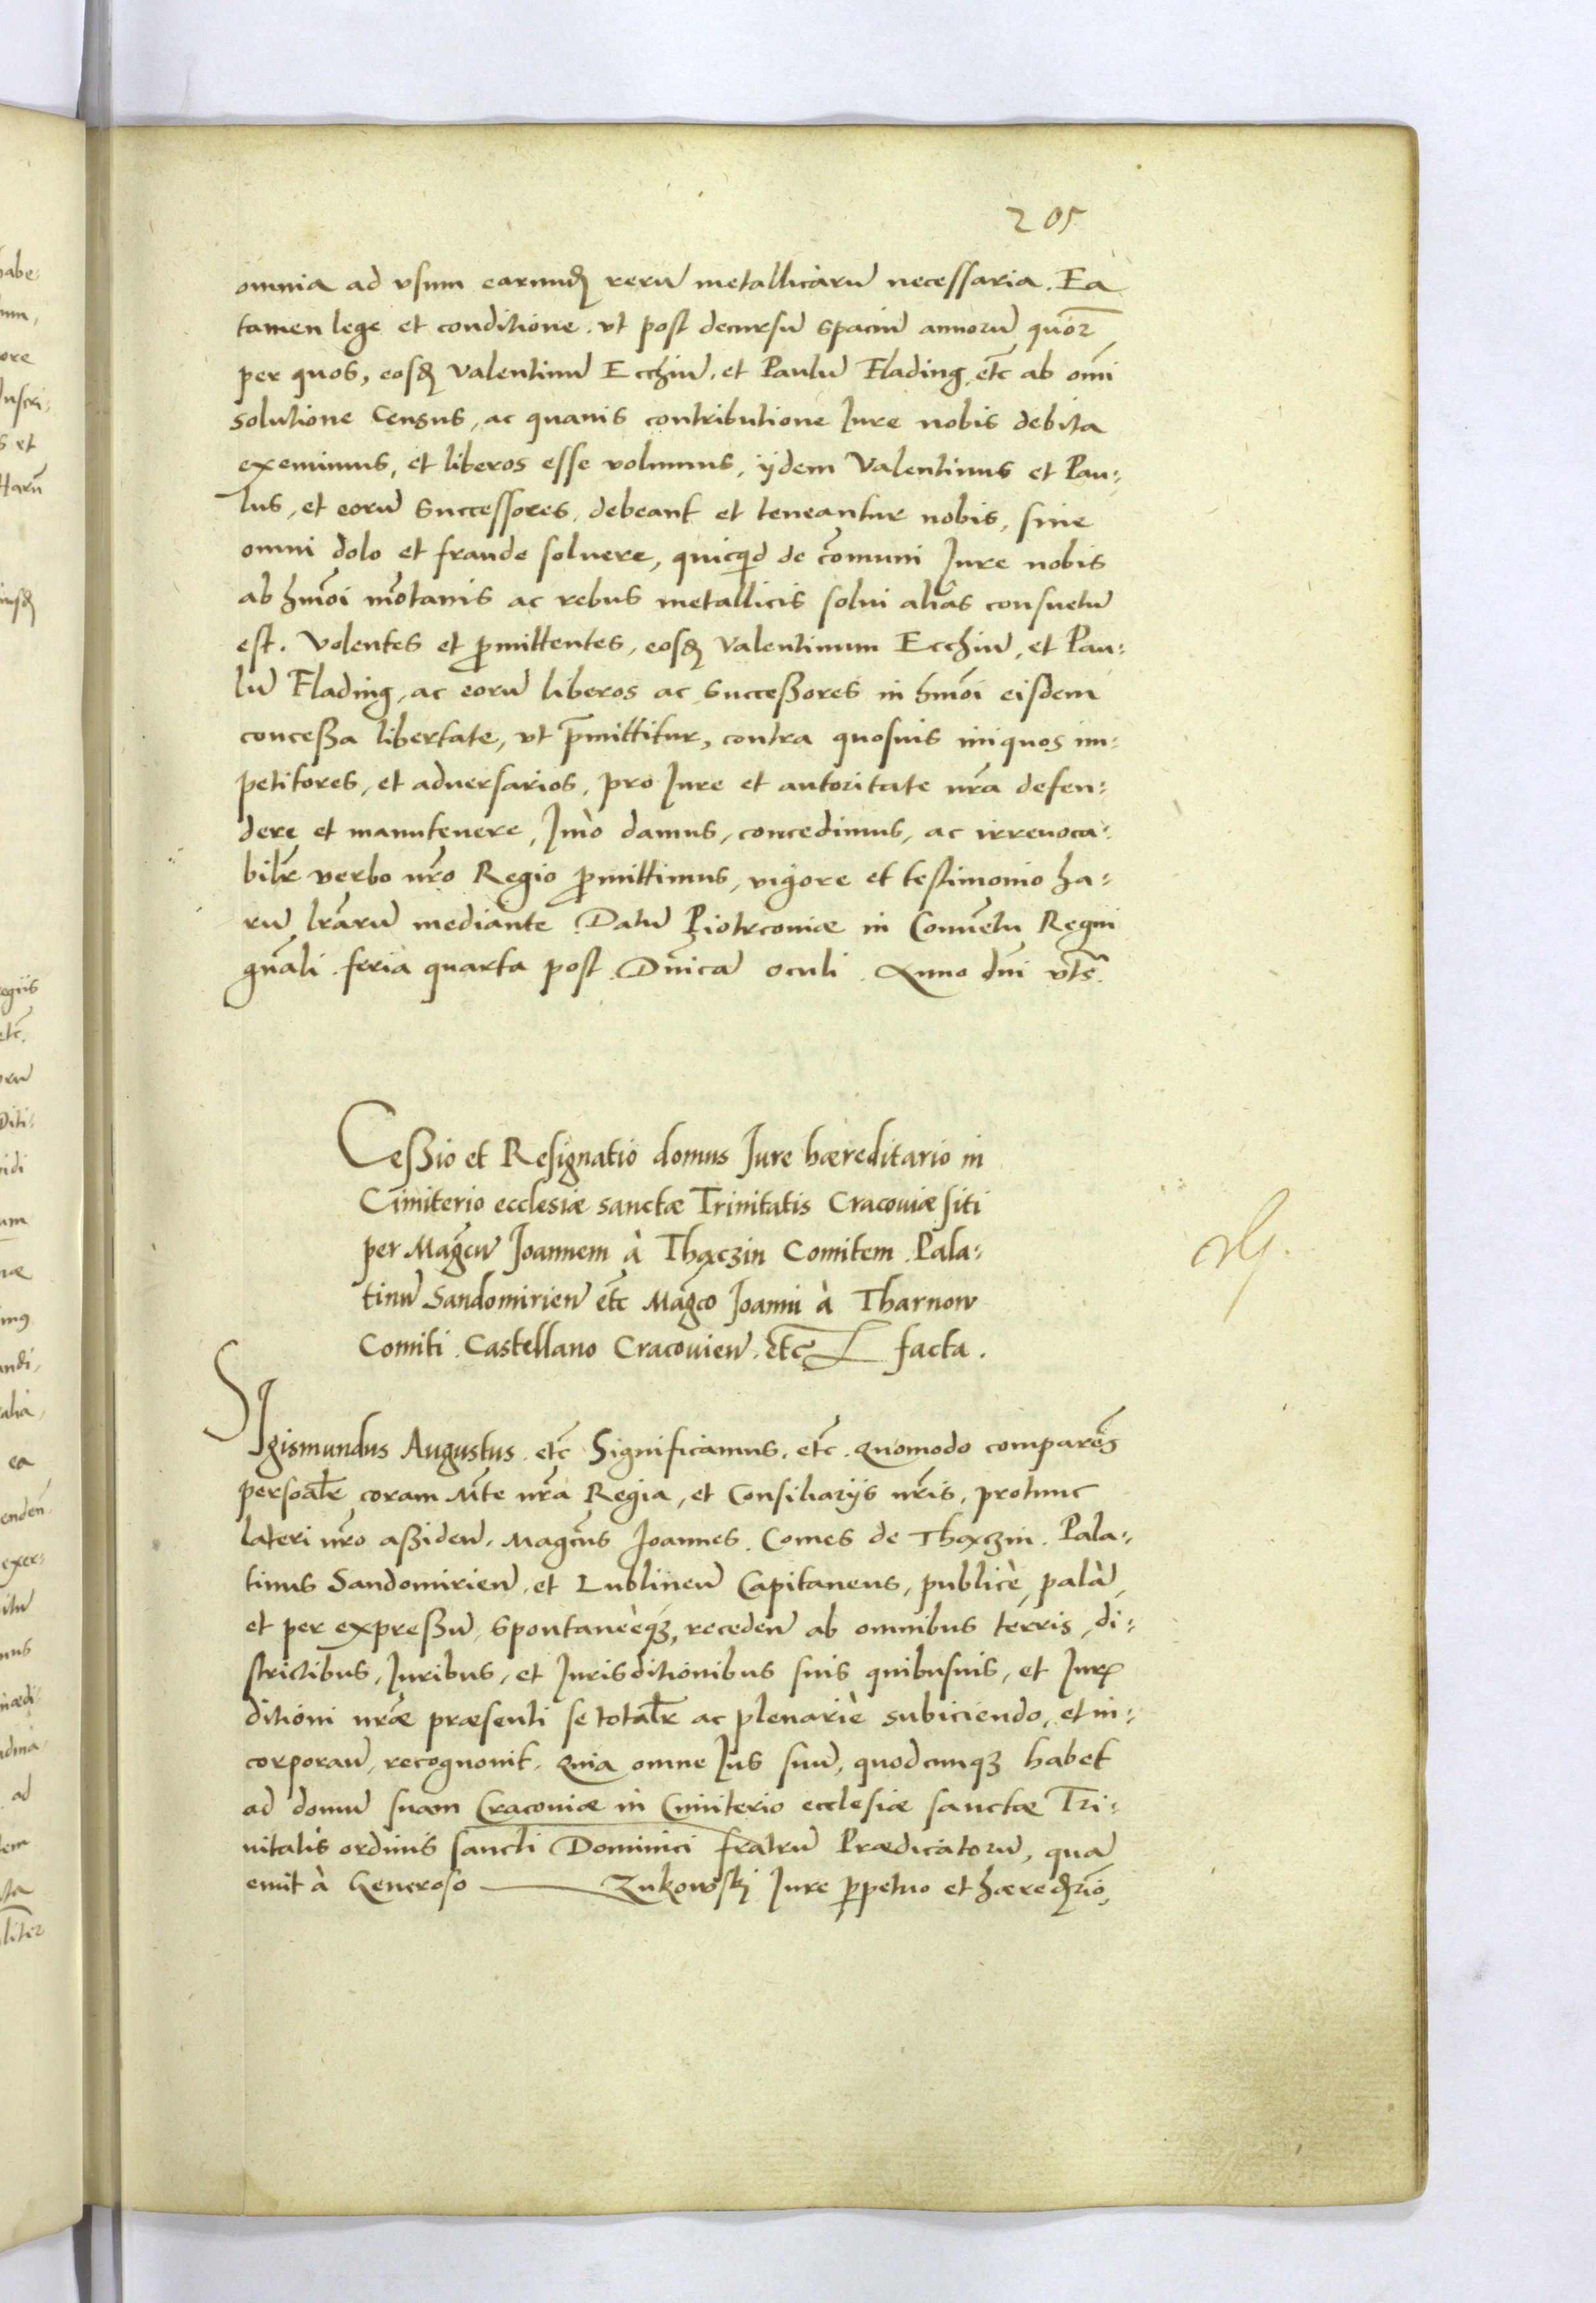 205
omnia ad vsum earundẽ rerũ metallicarũ necessaria. Ea
tamen lege et conditione. vt post decursũ spaciũ annorũ quor̃
per quos, eosdẽ Valentinũ Ecchiũ. et Paulũ Flading, etc̃ ab om̃i
solutione Census, ac quauis contributione Iure nobis debita
exemimus, et liberos esse volumus, ijdem Valentinus et Pau:
lus, et eorũ Successores, debeant et teneantur nobis, sine
omni dolo et fraude soluere, quicq̃d de cõmuni Iure nobis
ab hmõi mõtanis ac rebus metallicis solui aliãs consuetũ
est. Volentes et p̃mittentes, eosdẽ Valentinum Ecchiũ, et Pau:
lũ Flading, ac eorũ liberos ac Succeßores in hmõi eisdem
conceßa libertate, vt p̃mittitur, contra quosuis iniquos im:
petitores, et aduersarios, pro Iure et autoritate nr̃a defen:
dere et manutenere, Imò damus, concedimus, ac irreuoca:
bilr̃ verbo nr̃o Regio p̃mittimus, vigore et testimonio ha:
rũ lr̃arũ mediante. Datũ Piotrconiæ in Conuẽtu Regni
gñali. feria quarta post Dñicã oculi. Anno dñi vts̃.
Ceßio et Resignatio domus Iure hæreditario in
Cimiterio ecclesiæ sanctæ Trinitatis Cracouiæ siti
per Magc̃ũ Joannem à Thaczin Comitem. Pala:
tinũ Sandomirieñ etc̃ Magc̃o Joanni à Tharnow
Comiti. Castellano Cracouieñ. etc̃ facta.
SIgismundus Augustus. etc̃ Significamus. etc̃. Quomodo comparẽs
persoalr̃ coram Mt̃e nr̃a Regia, et Consiliarijs nr̃is, protunc
lateri nr̃o aßideñ. Magc̃us Joannes. Comes de Thaczin. Pala:
tinus Sandomirieñ. et Lublineñ Capitaneus, publicè, palà
et per expreßũ, spontaneèqȝ, recedeñ ab omnibus terris, di:
strictibus, Iuribus, et Iurisditionibus suis quibusuis, et Iuris
ditioni nr̃æ præsenti se totalr̃ ac plenariè subiciendo, et in:
corporañ, recognouit. Quia omne Ius suũ, quodcunqȝ habet
ad domũ suam Cracouiæ in Cimiterio ecclesiæ sanctæ Tri:
nitatis ordinis sancti Dominici fratrũ Prædicatorũ, quã
emit à Generoso Zukowskj Iure p̃petuo et hæredr̃io,